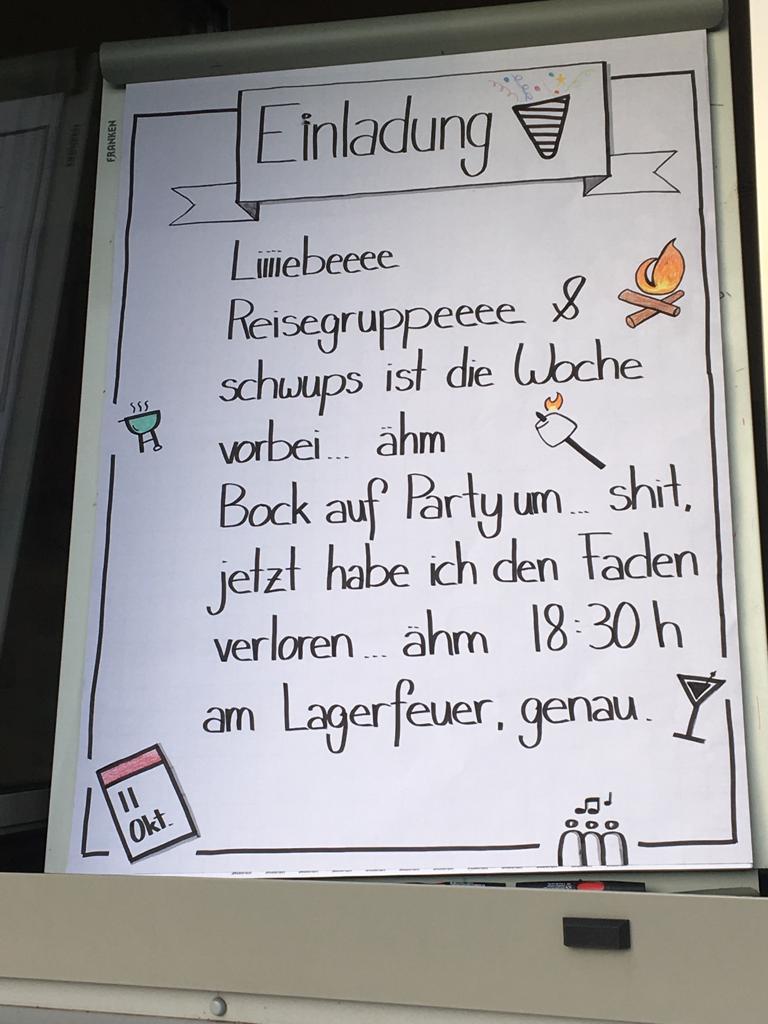 FRANKEN
Einladung
Liiiiebeeee
Reisegruppeeeee &
schwups ist die Woche
vorbei... ähm
Bock auf Party um... shit,
jetzt habe ich den Faden
verloren... ähm 18:30 h
am Lagerfeuer, genau.
11
Okt.